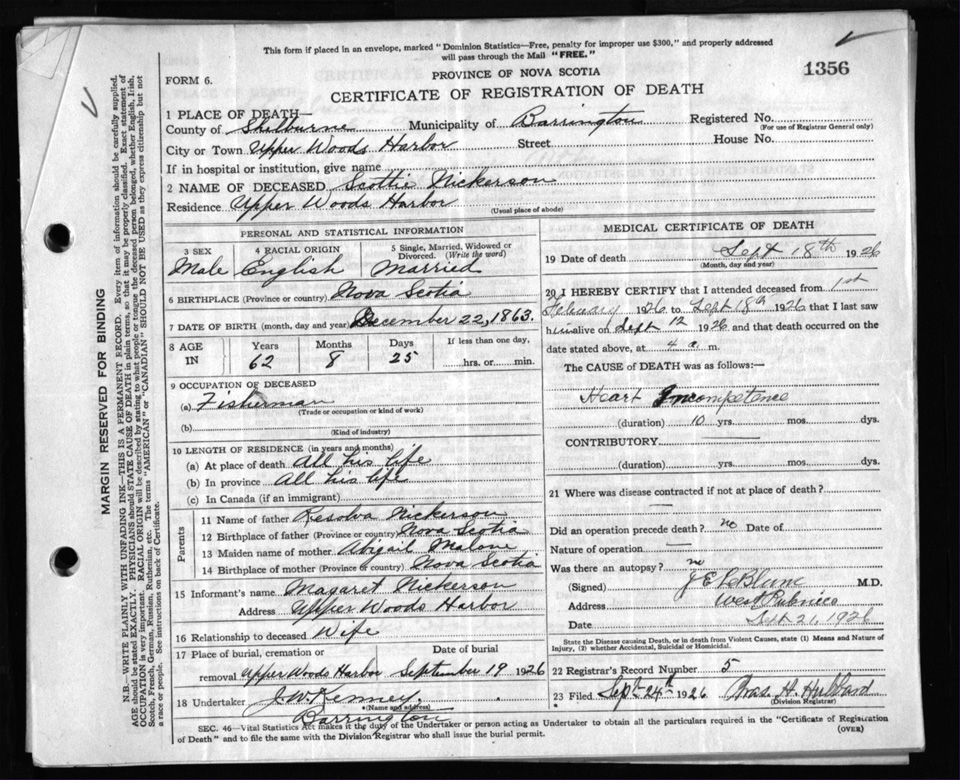 This form if placed in an envelope, marked "Dominion Statistics—Free, penalty for improper use $300," and properly addressed
will pass through the Mail "FREE."
1356
PROVINCE OF NOVA SCOTIA
FORM 6.
CERTIFICATE OF REGISTRATION OF DEATH
1 PLACE OF DEATH—
County of Shelburne Municipality of Barrington Registered No.
(For use of Registrar General only)
City or Town Upper Woods Harbor Street House No.
If in hospital or institution, give name
2 NAME OF DECEASED Scottie Nickerson
Residence Upper Woods Harbor
(Usual place of abode)
PERSONAL AND STATISTICAL INFORMATION
3 SEX 4 RACIAL ORIGIN 5 Single, Married, Widowed or
Divorced. (Write the word)
Male English Married
6 BIRTHPLACE (Province or country) Nova Scotia
7 DATE OF BIRTH (month, day and year) December 22, 1863.
8 AGE IN Years Months Days If less than one day,
62 8 25 hrs. or min.
9 OCCUPATION OF DECEASED
(a) Fisherman
(Trade or occupation or kind of work)
(b)
(Kind of industry)
10 LENGTH OF RESIDENCE (in years and months)
(a) At place of death All his life
(b) In province All his life
(c) In Canada (if an immigrant)
Parents
11 Name of father Resolva Nickerson
12 Birthplace of father (Province or country) Nova Scotia
13 Maiden name of mother Abigail Malone
14 Birthplace of mother (Province or country) Nova Scotia
15 Informant's name Magaret Nickerson
Address Upper Woods Harbor
16 Relationship to deceased Wife
17 Place of burial, cremation or Date of burial
removal Upper Woods Harbor September 19 1926
18 Undertaker J W Kenney.
(Name and address)
Barrington
MEDICAL CERTIFICATE OF DEATH
19 Date of death Sept 18th 1926
(Month, day and year)
20 I HEREBY CERTIFY that I attended deceased from 1st
February 1926 to Sept 18th 1926 that I last saw
him alive on Sept 12 1926 and that death occurred on the
date stated above, at 4 a. m.
The CAUSE of DEATH was as follows:—
Heart Incompetence
(duration) 10 yrs. mos. dys.
CONTRIBUTORY
(duration) yrs. mos. dys.
21 Where was disease contracted if not at place of death?
Did an operation precede death? no Date of
Nature of operation
Was there an autopsy? no
(Signed) J E LeBlanc M.D.
Address West Pubnico
Date Sept 21, 1926
State the Disease causing Death, or in death from Violent Causes, state (1) Means and Nature of
Injury, (2) whether Accidental, Suicidal or Homicidal.
22 Registrar's Record Number 5
23 Filed Sept 24th 1926 H. Hubbard
(Division Registrar)
SEC. 46—Vital Statistics Act makes it the duty of the Undertaker or person acting as Undertaker to obtain all the particulars required in the "Certificate of Registration
of Death" and to file the same with the Division Registrar who shall issue the burial permit.
(OVER)
MARGIN RESERVED FOR BINDING
N.B.—WRITE PLAINLY WITH UNFADING INK—THIS IS A PERMANENT RECORD. Every item of information should be carefully supplied.
AGE should be stated EXACTLY. PHYSICIANS should STATE CAUSE OF DEATH in plain terms, so that it may be properly classified. Exact statement of
OCCUPATION is very important. RACIAL ORIGIN will be described by stating to what people or tongue the deceased person belonged, whether English, Irish,
Scotch, French, German, Russian, Ruthenian, etc. The terms "AMERICAN" or "CANADIAN" SHOULD NOT BE USED as they express citizenship but not
a race or people. See instructions on back of Certificate.